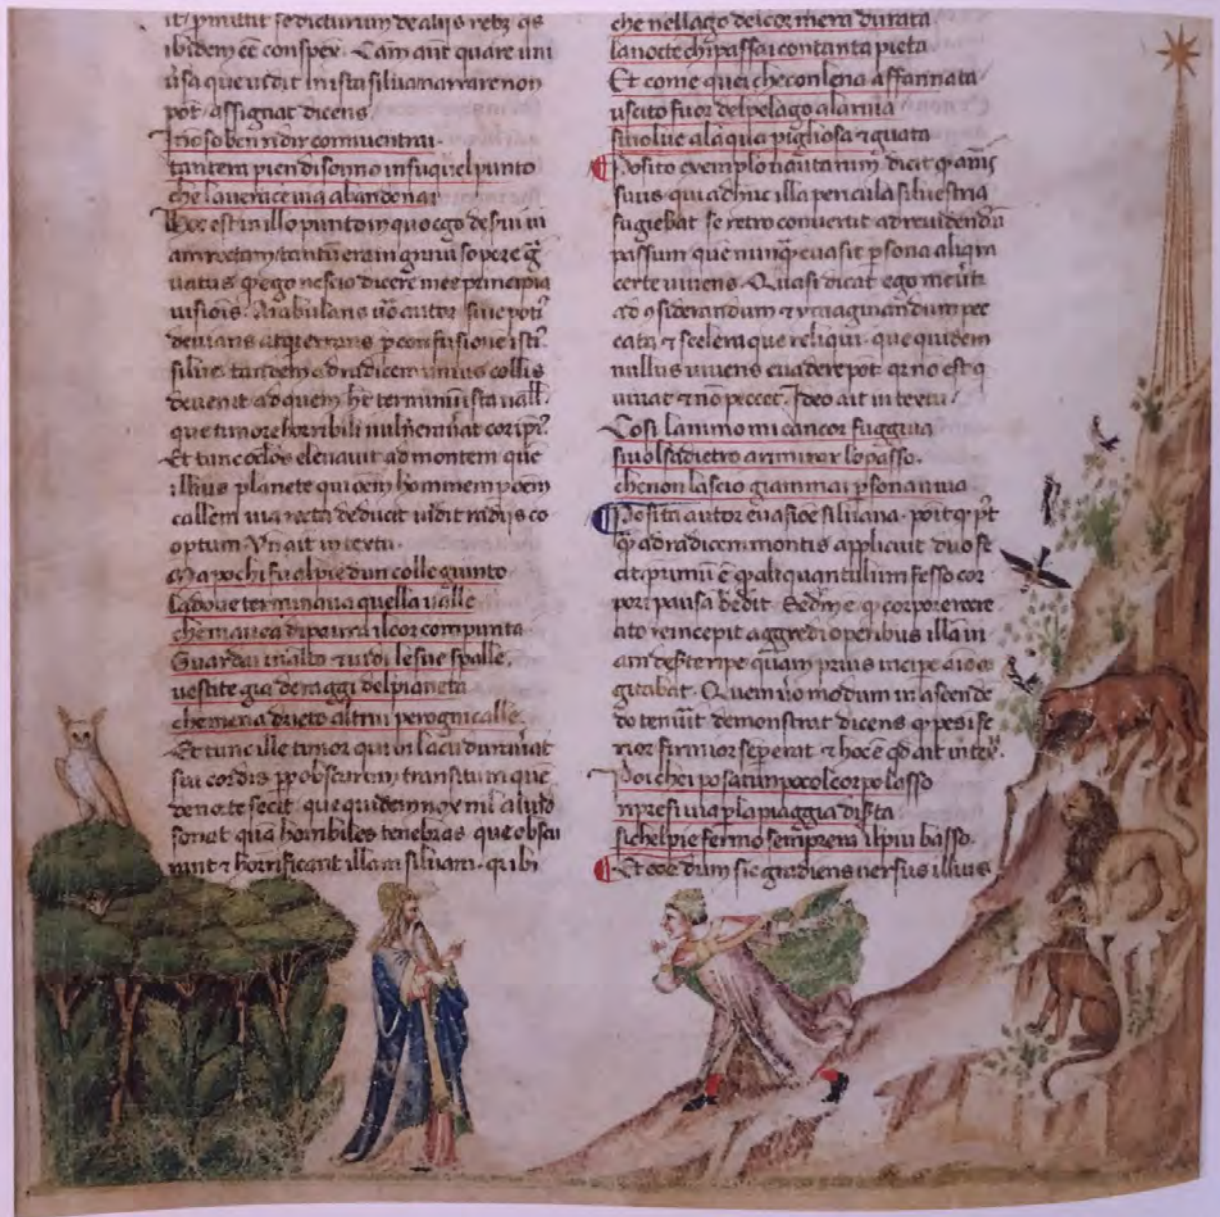 it pmittit se dicturum de alijs rebz qs
ibidem eē conspex. Cam aut quare uni
ūsa que uidit in ista silua narrare non
pot assignat dicens
I no so ben ridir com iuentrai.
tantera pien disonno insuquelpunto
che lauerace uia abandonai
Hoc est in illo punto in quo ego desiui ui
am rectam tantū eram graui sopore
uatus qz ego nescio dicere mee principia
uisiois. Anbulans uō autor siue poti
deuians atqz errans p confusione isti
silue tandem ad radicem unius collis
deuenit ad quem ht terminū ista uall
que timore horribili cor ipi
Et tunc oclos eleuauit ad montem que
illius planete qui oēm hominem p oēm
callem uia recta deducit uidit radijs co
optum. Vn ait in textu.
Ma pochi fu alpie dun colle giunto
Ladoue terminaua quella ualle
che mauea dipaura ilcor compunto
Guardai inalto et uidi lesue spalle.
uestite gia deraggi delpianeta
che mena drieto altrui perogni calle.
Et tunc ille timor qui in lacu
sui cordis pp obscurum transitum que
de nocte fecit. que quidem nox mī aliud
sonat quā horribiles tenebras que obscu
rant et horrificant illam siluam. qui bi
che nellago delcor mera durata
lanocte chi passai contanta pieta
Et come quei che conlena affannata
uscito fuor delpelago alariua
siuolue alaqua pigliosa et guata
Posito exemplo nautarum dicit q anīs
suus qui adhuc illa pericula siluestria
fugiebat se retro conuertit ad reuidendū
passum que nunqz euasit psona aliqua
certe uiuens. Quasi dicat ego me uti
ad ɔsiderandum et ymaginandum pec
cata et scelera que reliqui. que quidem
nullus uiuens euadere pot. qr nō est q
uiuat et nō peccet. Ideo ait in textu
Cosi lanimo mi cancor fuggiua
siuolse adietro arimirar lo passo.
che non lascio giammai psona uiua
Posita autor euasioe siluana. poit q pt
q ad radicem montis applicuit duo fe
cit. primū ē q aliquantulum fesso cor
pori pausa dedit. q corpore recre
ato reincepit aggredi operibus illam ui
am quam prius incipe aīo co
gitabat. Quem uō modum in ascende
do tenuit demonstrat dicens q pes ife
rior firmior sep erat et hoc ē qd ait in tex.
Poi chei posatun poco lcorpo lasso
ripresi uia pla piaggia diserta
sichelpie fermo sempre era ilpiu basso.
Et ecce dum sic gradiens uersus illius